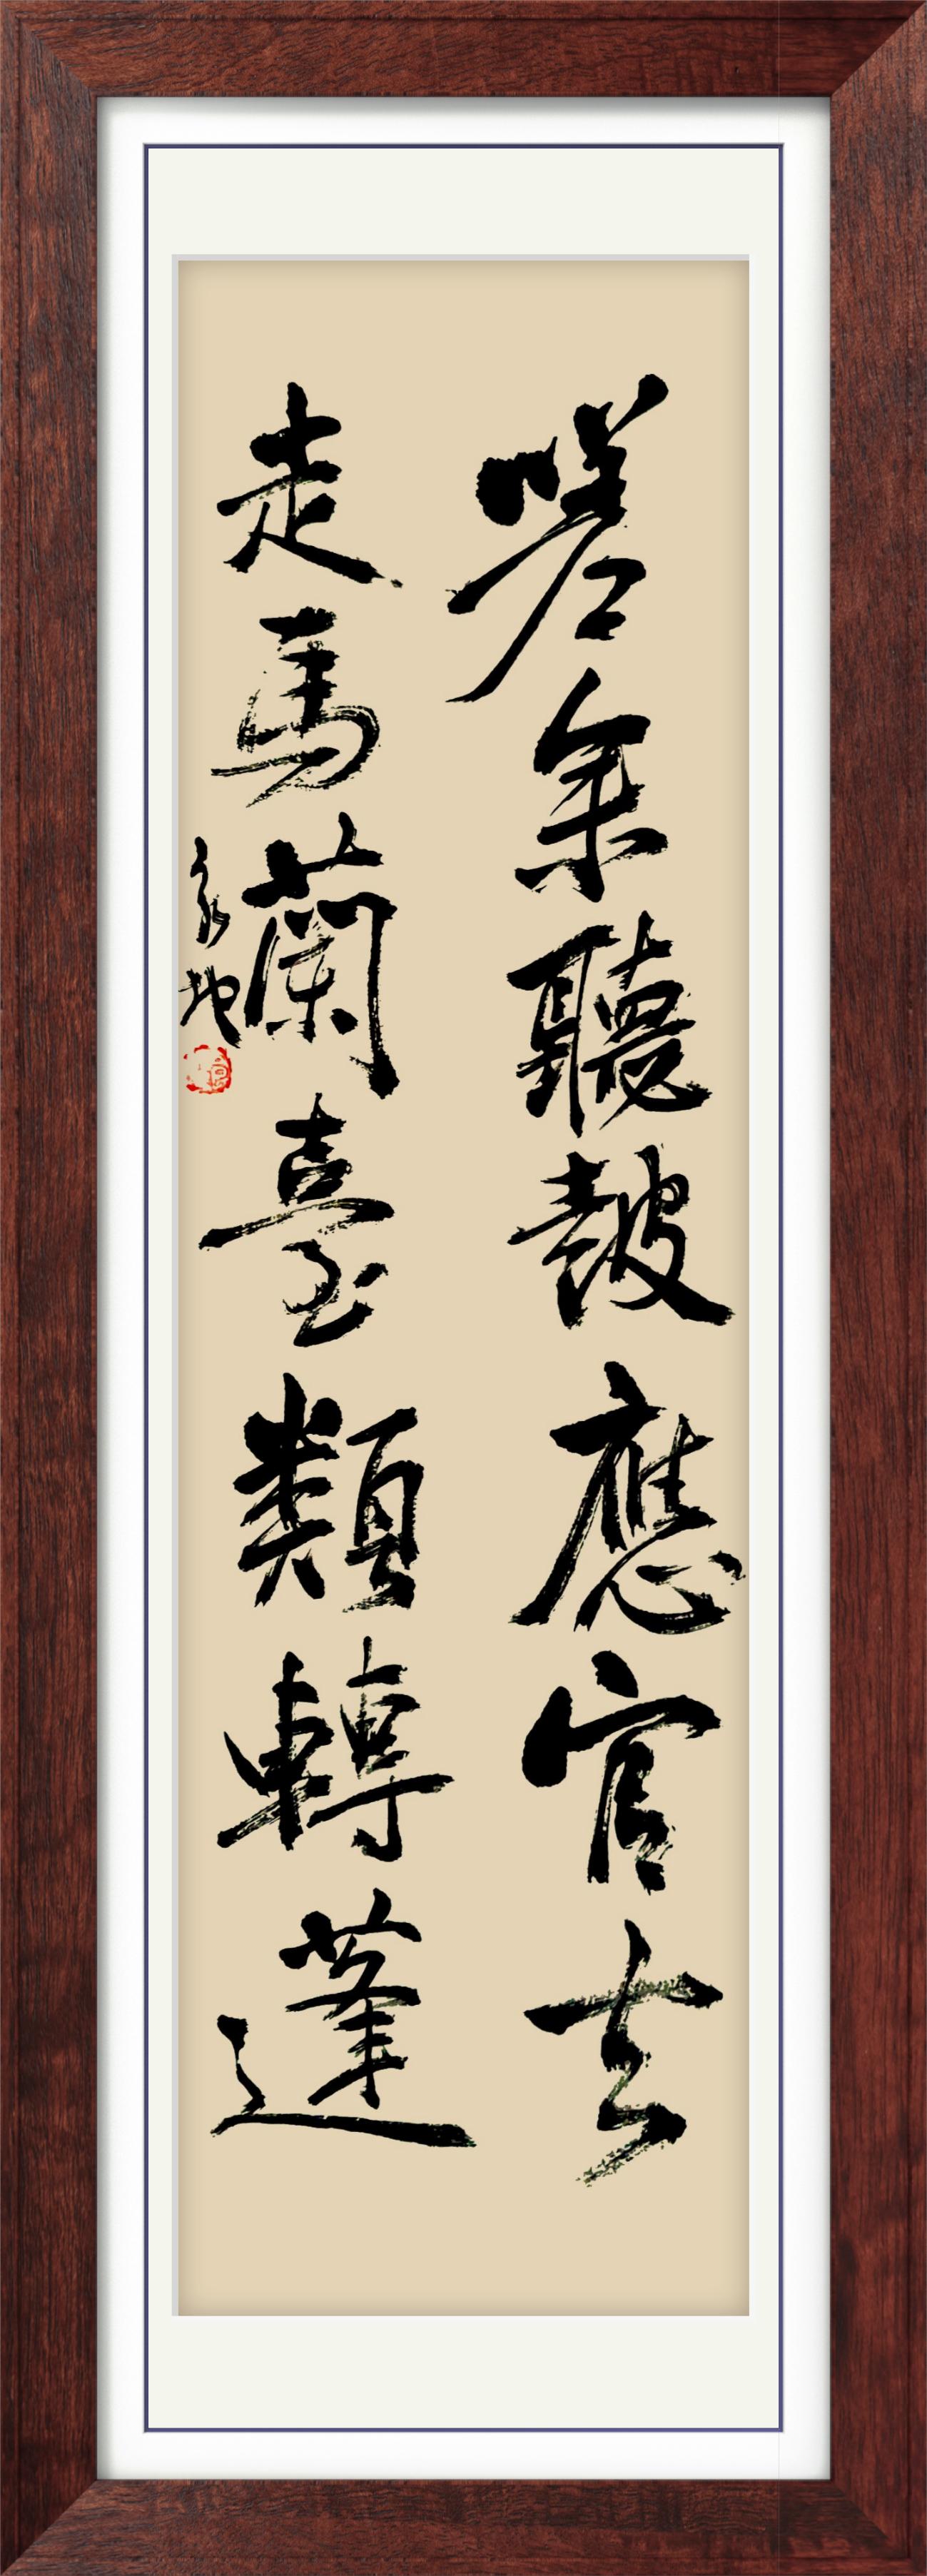 嗟余聽鼓應官去
走馬蘭臺類轉蓬